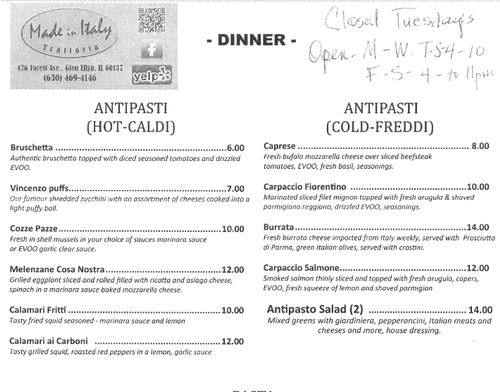 Made in Italy
Trattoria
476 Forest Ave., Glen Ellyn, IL 60137
(630) 469-4146
f
yelp
- DINNER -
Closed Tuesdays
Open - M - W. T-S 4-10
F - S - 4 - to 11pm
ANTIPASTI
(HOT-CALDI)
Bruschetta 6.00
Authentic bruschetta topped with diced seasoned tomatoes and drizzled
EVOO.
Vincenzo puffs 7.00
Our famous shredded zucchini with an assortment of cheeses cooked into a
light puffy ball.
Cozze Pazze 10.00
Fresh in shell mussels in your choice of sauces marinara sauce
or EVOO garlic clear sauce.
Melenzane Cosa Nostra 12.00
Grilled eggplant sliced and rolled filled with ricotta and asiago cheese,
spinach in a marinara sauce baked mozzarella cheese.
Calamari Fritti 10.00
Tasty fried squid seasoned - marinara sauce and lemon
Calamari ai Carboni 12.00
Tasty grilled squid, roasted red peppers in a lemon, garlic sauce
ANTIPASTI
(COLD-FREDDI)
Caprese 8.00
Fresh bufala mozzarella cheese over sliced beefsteak
tomatoes, EVOO, fresh basil, seasonings.
Carpaccio Fiorentino 10.00
Marinated sliced filet mignon topped with fresh arugula & shaved
parmigiano reggiano, drizzled EVOO, seasonings.
Burrata 14.00
Fresh burrata cheese imported from Italy weekly, served with Prosciutto
di Parma, green italian olives, served with crostini.
Carpaccio Salmone 12.00
Smoked salmon thinly sliced and topped with fresh arugula, capers,
EVOO, fresh squeeze of lemon and shaved parmigiano
Antipasto Salad (2) 14.00
Mixed greens with giardiniera, pepperoncini, Italian meats and
cheeses and more, house dressing.